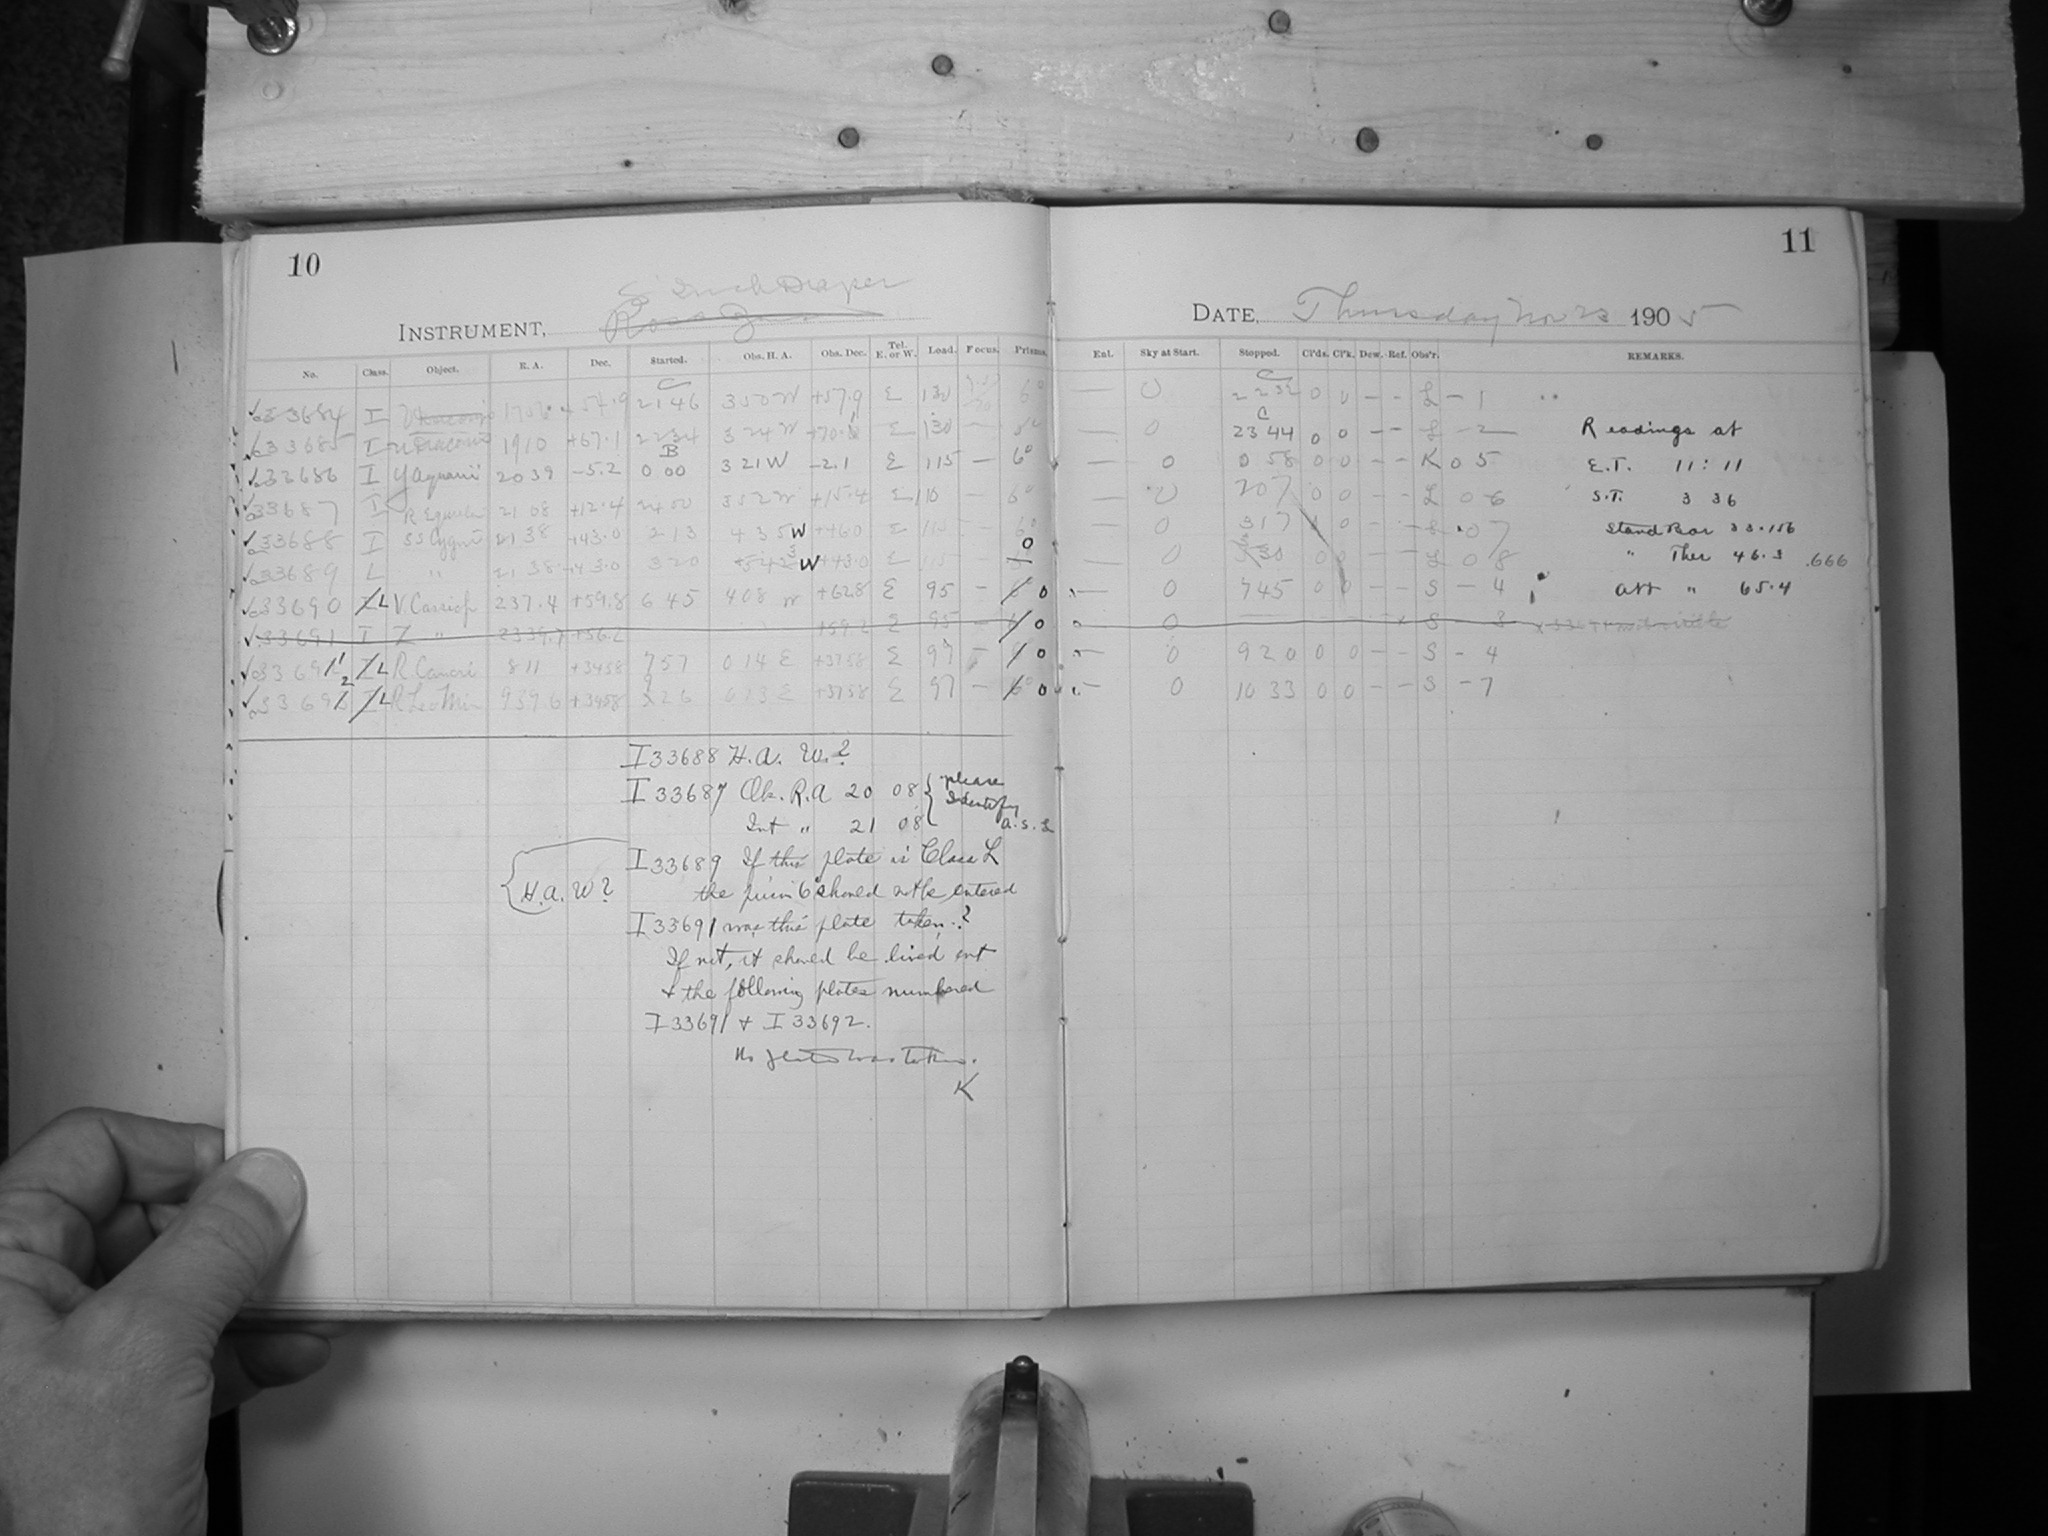 10
11
8 Inch Draper
INSTRUMENT,
DATE, Thursday Nov 23 1905
No. Class. Object. R. A. Dec. Started. Obs. H. A. Obs. Dec. Tel. E. or W. Load. Focus. Prisms. Enl. Sky at Start. Stopped. Cl'ds. Cl'k. Dew. Ref. Obs'r. REMARKS.
33684 I 2146 350 W +57.9 E 130 6° — 0 2232 0 0 - - L - 1
33685 I U Draconis 1910 +67.1 2234 324 W E 130 — — 0 2344 0 0 - - L - 2 Readings at
33686 I Y Aquarii 2039 -5.2 0 00 321 W -2.1 E 115 — 6° — 0 0 58 0 0 - - K 0 5 E.T. 11:11
33687 I R Equulei 21 08 +12.4 352 W +15.4 E 110 - 6° — 0 207 0 0 - - L 0 6 S.T. 3 36
33688 I SS Cygni 2138 +43.0 213 435 W +46.0 E 6° — 0 317 0 - - L 0 7 Stand Bar 33.156
33689 L " 2138 +43.0 320 W +43.0 E 0 — 0 0 0 - - L 0 8 " Ther 46.3 .666
33690 L V. Cassiop 237.4 +59.8 645 408 W +62.8 E 95 - 0 0 745 0 0 - - S - 4 Att " 65.4
33691 I Z " 2339.7 +56.2 +59.2 E 95 - 0 0 — S - 3
L R. Cancri 811 +3458 757 014 E +3758 E 97 - 0 — 0 920 0 0 - - S - 4
L R Leo Min 939.6 +3458 013 E +3758 E 97 - 0 — 0 1033 0 0 - - S - 7
I 33688 H.A. W.?
I 33687 Ob. R.A 20 08 { please
Identify
Int " 21 08 A.S.L
I 33689 If this plate is Class L
{ H.A. W?
the prism 6° should not be entered
I 33691 was this plate taken?
If not, it should be lined out
+ the following plates numbered
I 33691 + I 33692.
No plate was taken.
K